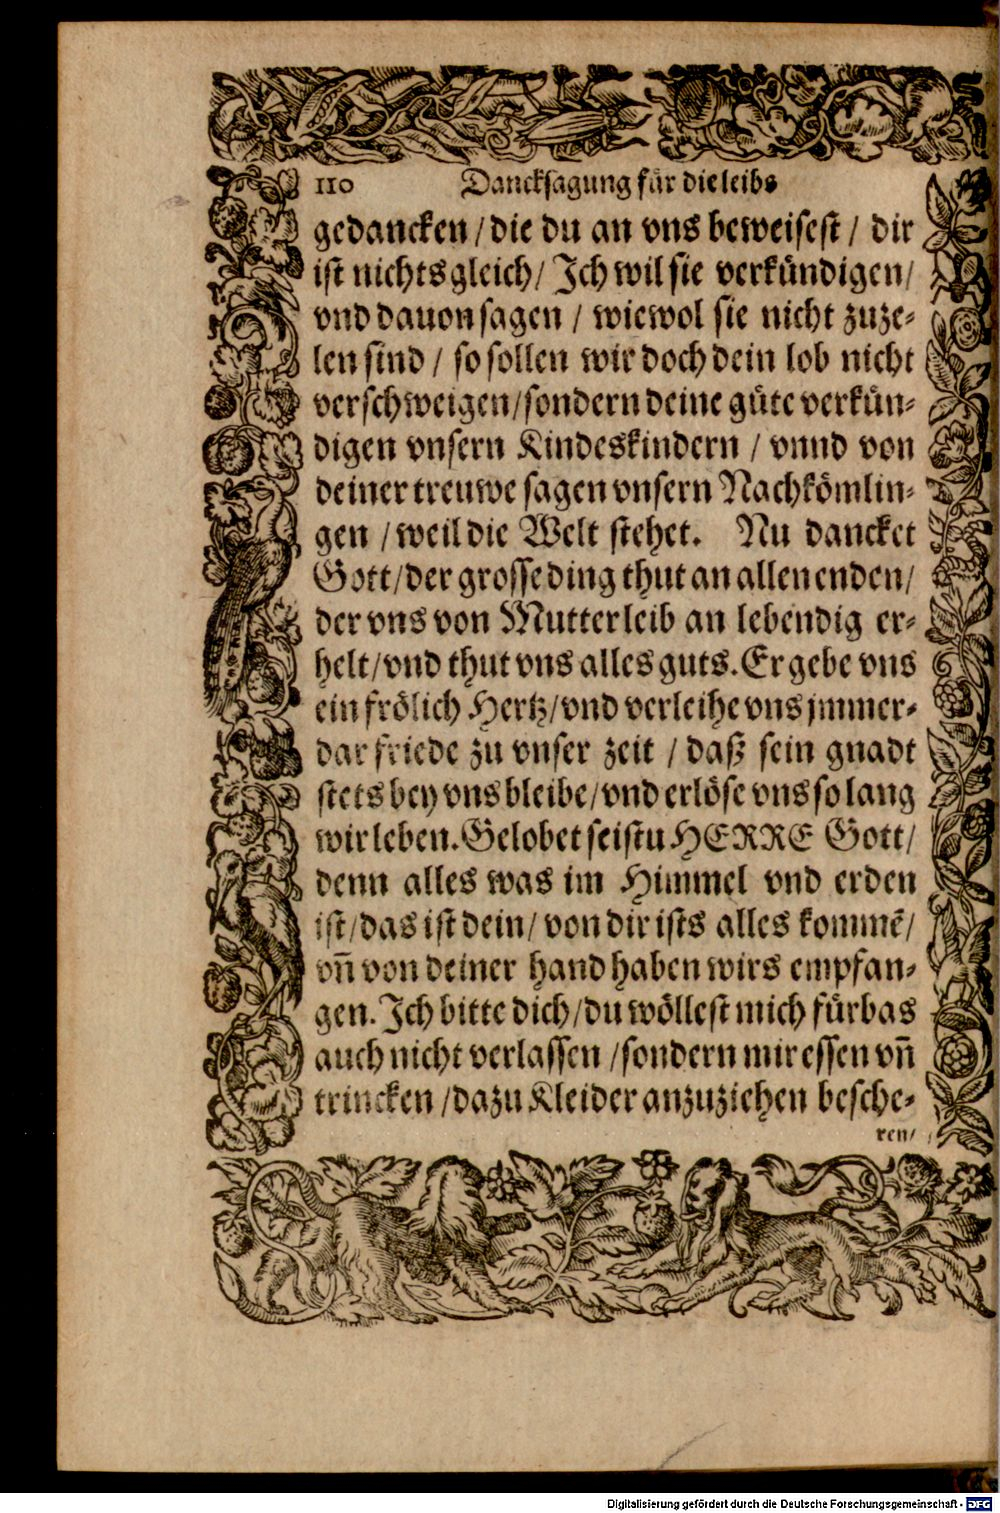 110 Dancksagung für die leibs
gedancken / die du an vns beweisest / dir
ist nichts gleich / Ich wil sie verkündigen /
vnd dauon sagen / wiewol sie nicht zuze-
len sind / so sollen wir doch dein lob nicht
verschweigen / sondern deine güte verkün-
digen vnsern Kindeskindern / vnnd von
deiner treuwe sagen vnsern Nachkömlin-
gen / weil die Welt stehet. Nu dancket
Gott / der grosse ding thut an allen enden /
der vns von Mutterleib an lebendig er-
helt / vnd thut vns alles guts. Er gebe vns
ein frölich Hertz / vnd verleihe vns jmmer-
dar friede zu vnser zeit / daß sein gnadt
stets bey vns bleibe / vnd erlöse vns so lang
wir leben. Gelobet seistu HERRE Gott /
denn alles was im Himmel vnd erden
ist / das ist dein / von dir ists alles kommẽ /
vñ von deiner hand haben wirs empfan-
gen. Ich bitte dich / du wöllest mich fürbas
auch nicht verlassen / sondern mir essen vñ
trincken / dazu Kleider anzuziehen besche-
ren /
Digitalisierung gefördert durch die Deutsche Forschungsgemeinschaft - DFG